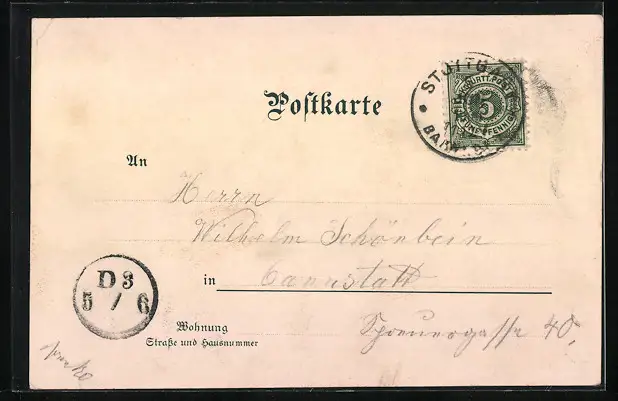 STUTTG
K. WÜRTT. POST
5
FÜNF PFENNIG
BAHN
Postkarte
An
Herrn
Wilhelm Schönbein
in Cannstatt
D 3
5 / 6
Wohnung
Straße und Hausnummer
40.